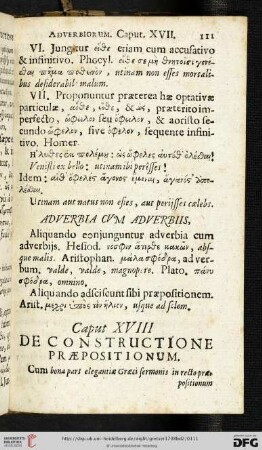 ADVERBIORUM. Caput. XVII. 111
VI. Jungitur εἴθε etiam cum accusativo
& infinitivo. Phocyl. εἴθε σε μὴ θνητοῖσι γενέ-
σθαι πῆμα ποθεινὸν, utinam non esses mortali-
bus desiderabile malum.
VII. Proponuntur præterea hæ optativæ
particulæ, αἴθε, εἴθε, & ὡς, præterito im-
perfecto, ὤφελον seu ὄφελον, & aoristo se-
cundo ὤφελον, sive ὄφελον, sequente infini-
tivo. Homer.
Ἤλυθες ἐκ πολέμου· ὡς ὤφελες αὐτόθ' ὀλέσθαι!
Venisti ex bello: utinam ibi perisses!
Idem: αἴθ' ὄφελες ἄγονός τ' ἔμεναι, ἄγαμός τ' ἀπο-
λέσθαι,
Utinam aut natus non esses, aut periisses cælebs.
ADVERBIA CVM ADVERBIIS.
Aliquando conjunguntur adverbia cum
adverbijs. Hesiod. νόσφιν ἄτερθε κακῶν, abs-
que malis. Aristophan. μάλα σφόδρα, ad ver-
bum, valde, valde, magnopere. Plato. πάνυ
σφόδρα, omnino.
Aliquando adsciscunt sibi præpositionem.
Arist. μέχρι ὑπὸ τὸν ἥλιον, usque ad solem.
Caput XVIII
DE CONSTRUCTIONE
PRÆPOSITIONUM.
Cum bona pars elegantiæ Græci sermonis in recto præ-
positionum
http://digi.ub.uni-heidelberg.de/diglit/gretser1738bd2/0111
DFG